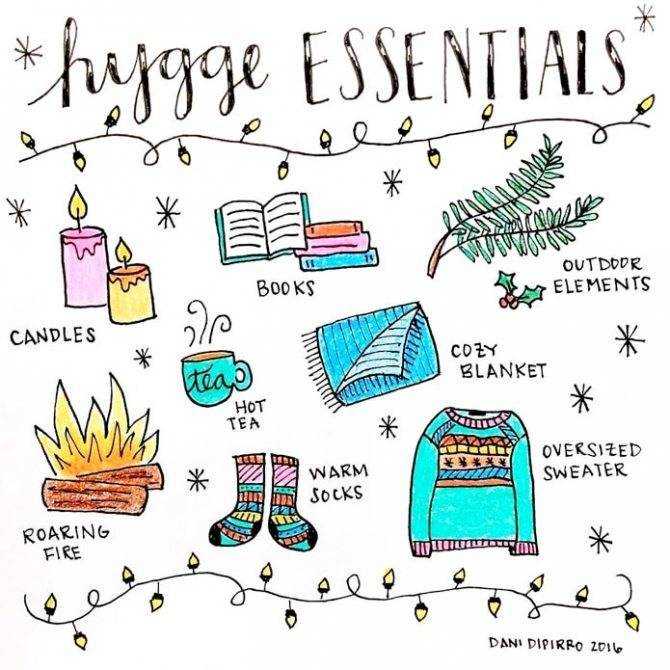 hygge ESSENTIALS
BOOKS
OUTDOOR
ELEMENTS
CANDLES
tea
HOT
TEA
COZY
BLANKET
ROARING
FIRE
WARM
SOCKS
OVERSIZED
SWEATER
DANI DIPIRRO 2016